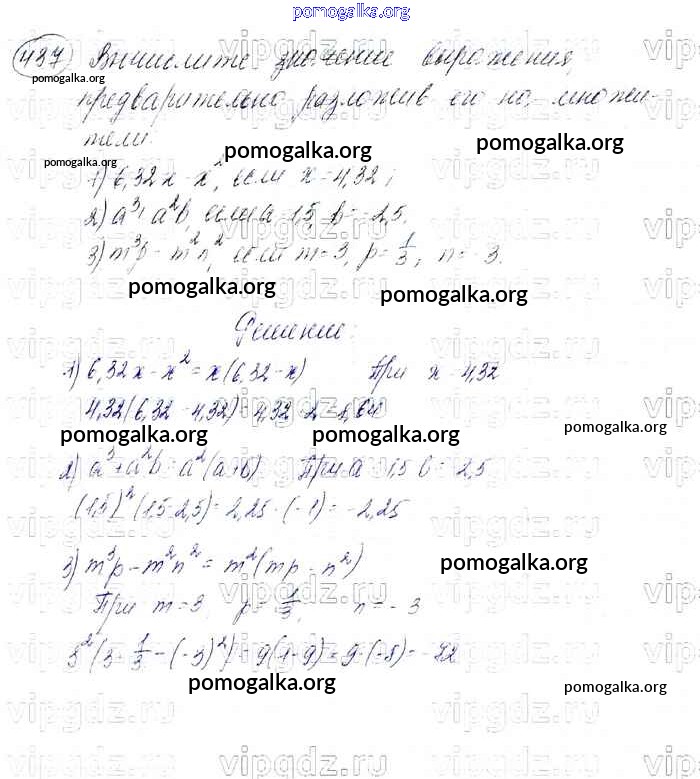 pomogalka.org
437 Вычислите значение выражения,
pomogalka.org
предварительно разложив его на множи-
тели.
pomogalka.org pomogalka.org
pomogalka.org
1) 6,32x - x², если x = 4,32;
2) a³ + a²b, если a = 1,5, b = -2,5.
3) m³p - m²n², если m = 3, p = 1/3, n = -3.
pomogalka.org pomogalka.org
Решение:
1) 6,32x - x² = x(6,32 - x) При x = 4,32
4,32(6,32 - 4,32) = 4,32 · 2 =
pomogalka.org pomogalka.org pomogalka.org
2) a³ + a²b = a²(a + b) При a = 1,5 b = -2,5
(1,5)² (1,5 - 2,5) = 2,25 · (-1) = -2,25
3) m³p - m²n² = m²(mp - n²)
pomogalka.org
При m = 3 p = 1/3, n = -3
3²(3 · 1/3 - (-3)²) = 9(1 - 9) = 9 · (-8) = -72
pomogalka.org pomogalka.org
vipgdz.ru